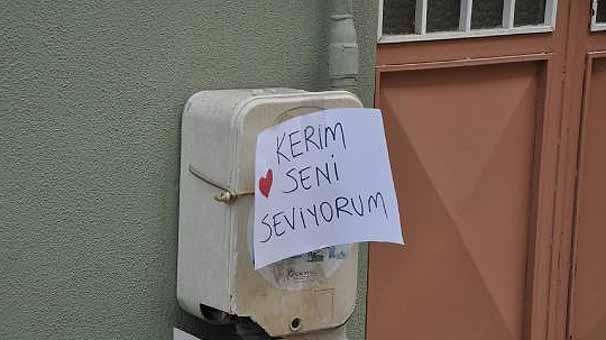 KERİM
SENİ
SEVİYORUM